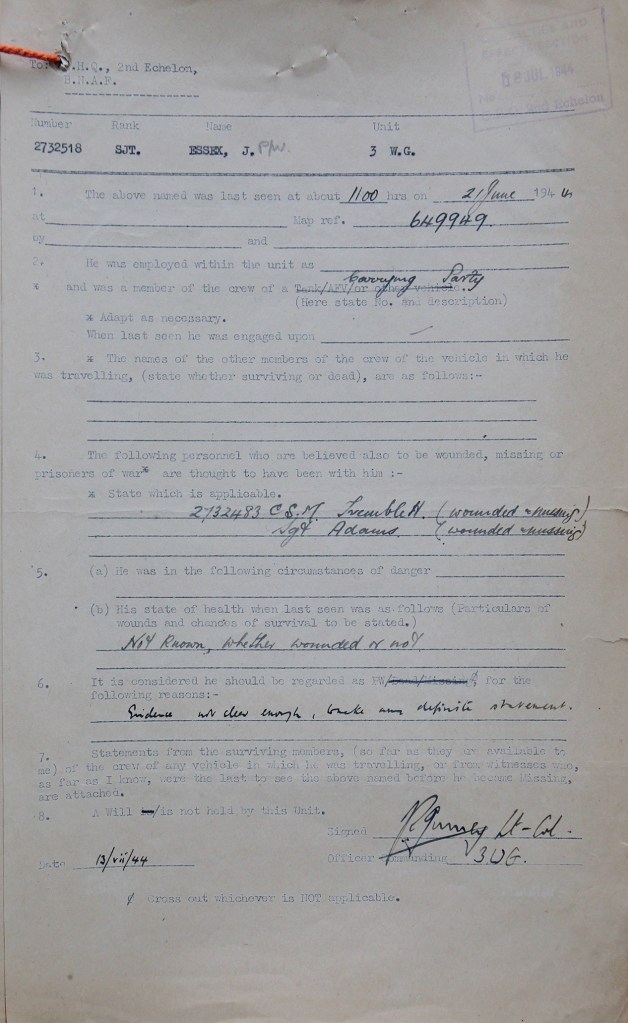 To: .H.Q., 2nd Echelon,
B.N.A.F.
18 JUL 1944
2nd Echelon
Number Rank Name Unit
2732518 SJT. ESSEX, J. P/W. 3 W.G.
1. The above named was last seen at about 1100 hrs on 21 June 1944
at Map ref. 649949.
by and
2. He was employed within the unit as
Carrying Party
* and was a member of the crew of a Tank/AFV/or other vehicle.
(Here state No. and description)
* Adapt as necessary.
When last seen he was engaged upon
3. * The names of the other members of the crew of the vehicle in which he
was travelling, (state whether surviving or dead), are as follows:-
4. The following personnel who are believed also to be wounded, missing or
prisoners of war* are thought to have been with him :-
* State which is applicable.
2732483 C.S.M. Tremble H. (wounded & missing)
Sgt Adams. (wounded & missing)
5. (a) He was in the following circumstances of danger
(b) His state of health when last seen was as follows (Particulars of
wounds and chances of survival to be stated.)
Not Known, whether wounded or not.
6. It is considered he should be regarded as PW/Dead/Missing ∮, for the
following reasons:-
Evidence not clear enough, to make any definite statement.
7. Statements from the surviving members, (so far as they are available to
me) of the crew of any vehicle in which he was travelling, or from witnesses who,
as far as I know, were the last to see the above named before he became Missing,
are attached.
8. A Will is/is not held by this Unit.
Signed Lt-Col.
Date 13/vii/44 Officer Commanding 3 WG.
∮ Cross out whichever is NOT applicable.